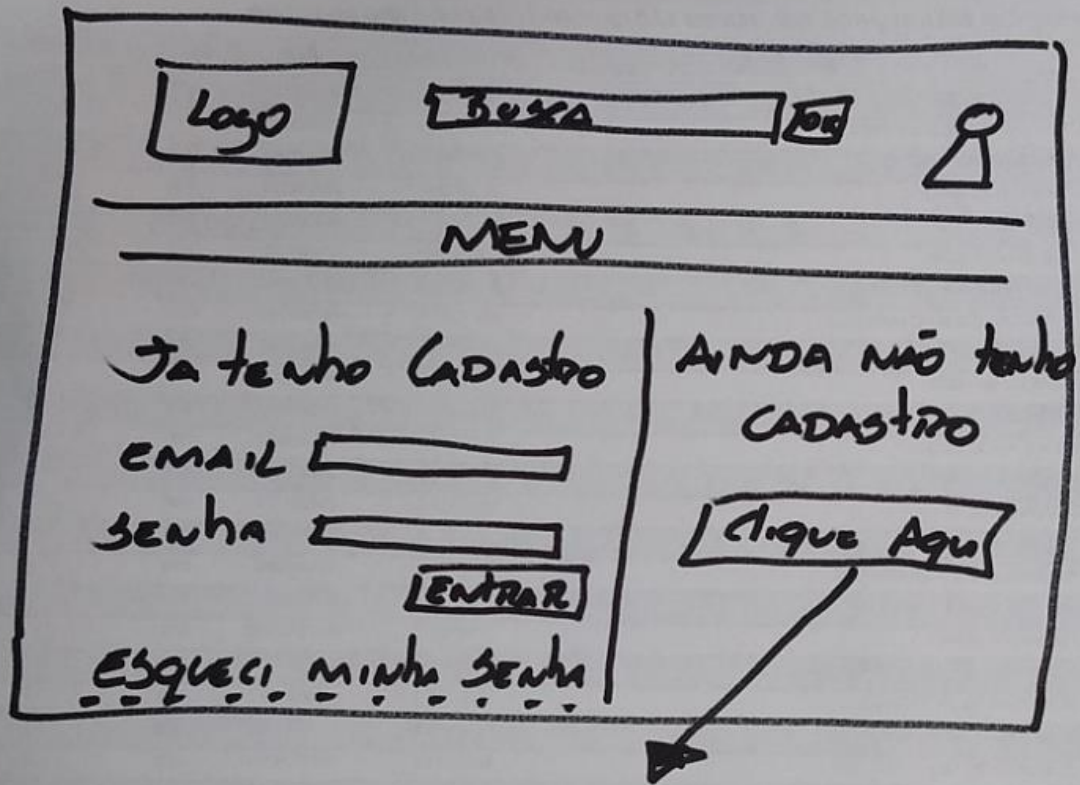 Logo
BUSCA
OK
MENU
Ja tenho CADAStRO
EMAIL
SENhA
ENtRAR
ESQUECI MINhA SENhA
AINDA NÃO tenho
CADAStRO
Clique Aqui